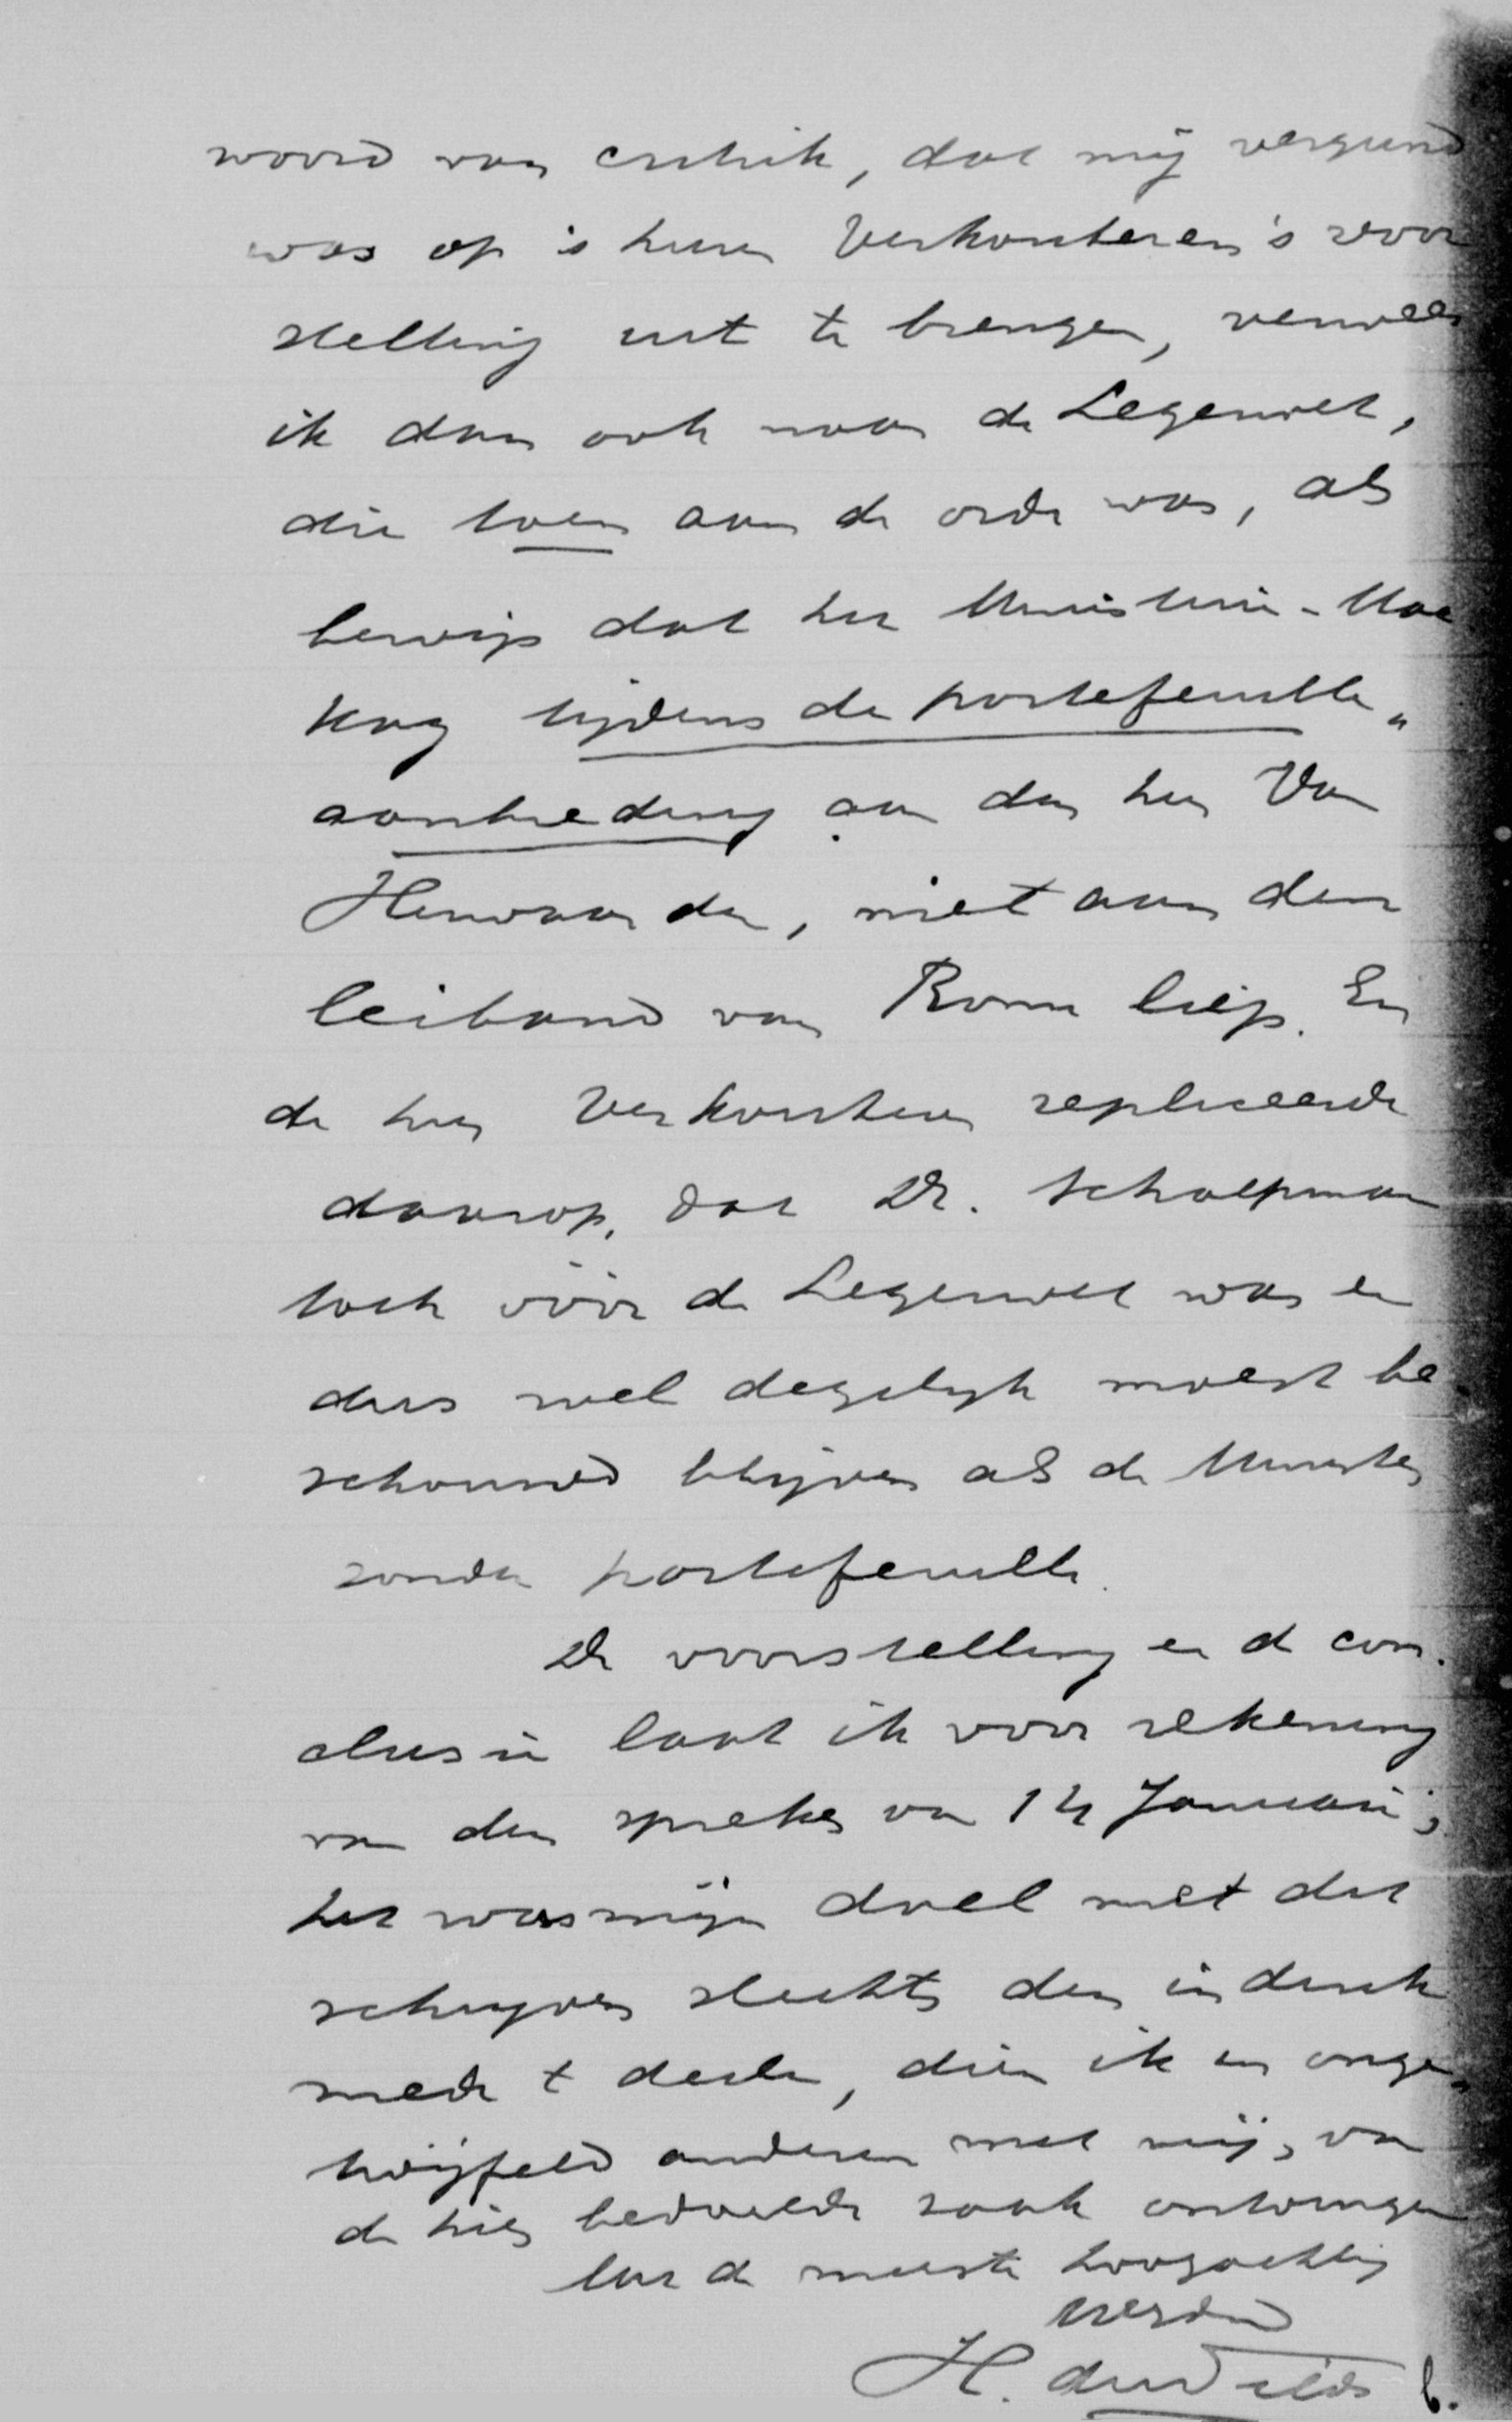 woord van critiek, dat mij vergund
was op 's heeren Verkouteren's voor
stelling uit te brengen, verwees
ik dan ook naar de Legerwet,
die toen aan de orde was, als
bewijs dat het Ministerie-Mac
kay tijdens de portefeuille„
aanbieding aan den heer Van
, niet aan den
leiband van Rome liep. En
de heer Verkouteren repliceerde
daarop, dat Dr. Schaepman
toch vóór de Legerwet was en
dus wel degelijk moest be
schouwd blijven als de Minister
zonder portefeuille.
De voorstelling en de con.
clusie laat ik voor rekening
van den spreker van 14 Januari;
het was mijn doel met dit
schrijven slechts den indruk
mede te deelen, dien ik en onge„
twijfeld anderen met mij, van
de hier bedoelde zaak ontvingen
Met de meeste hoogachting
H. de Wilde